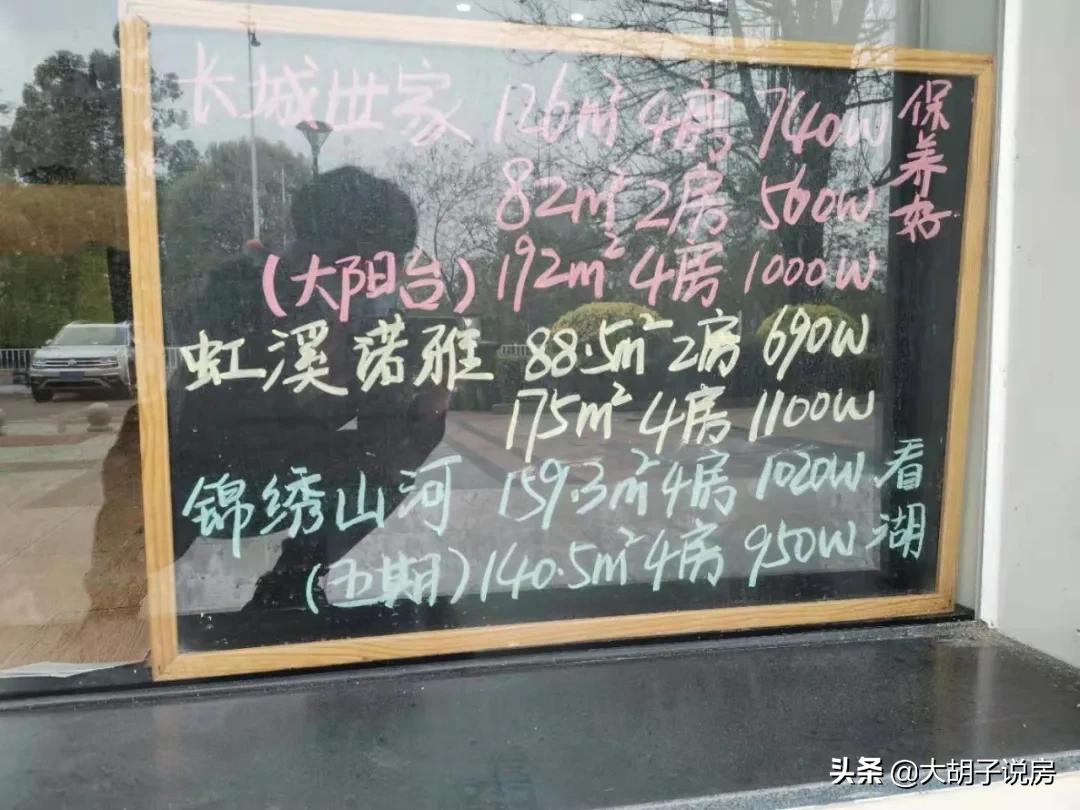 长城世家 126m² 4房 740W 保养好
82m² 2房 560W
(大阳台) 192m² 4房 1000W
虹溪诺雅 88.5m² 2房 690W
175m² 4房 1100W
锦绣山河 159.3m² 4房 1020W 看湖
(五期) 140.5m² 4房 950W
头条 @大胡子说房